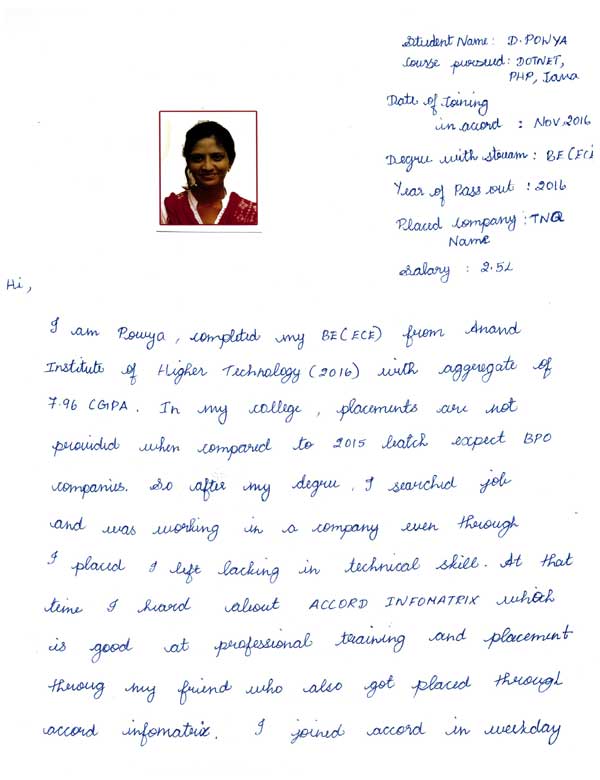 Student Name: D. POWYA
Course pursued: DOTNET,
PHP, Java
Date of Joining
in accord : Nov, 2016
Degree with stream : BE (ECE
Year of Pass out : 2016
Placed company : TNQ
Name
Salary : 2.5L
Hi,
I am Powya, completed my BE(ECE) from Anand
Institute of Higher Technology (2016) with aggregate of
7.96 CGPA. In my college, placements are not
provided when compared to 2015 batch expect BPO
companies. So after my degree, I searched job
and was working in a company even through
I placed I left lacking in technical skill. At that
time I heard about ACCORD INFOMATRIX which
is good at professional training and placement
theroug my friend who also got placed through
accord infomatrix. I joined accord in weekday